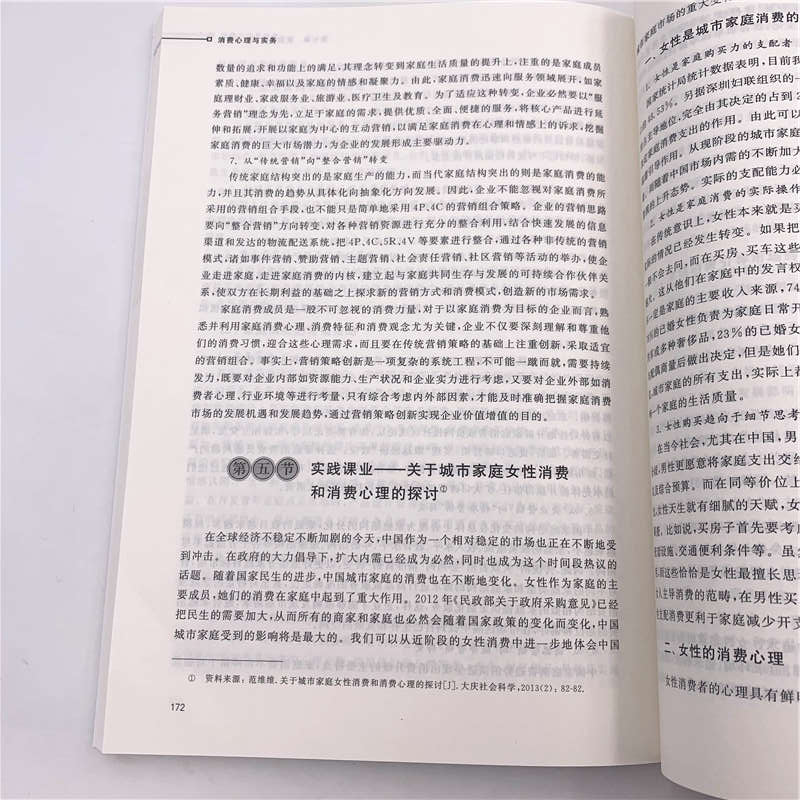 消费心理与实务
数量的追求和功能上的满足,其理念转变到家庭生活质量的提升上,注重的是家庭成员
素质、健康、幸福以及家庭的情感和凝聚力。由此,家庭消费迅速向服务领域展开,如家
庭理财业、家政服务业、旅游业、医疗卫生及教育。为了适应这种转变,企业必然要以“服
务营销”理念为先,立足于家庭的需求,提供优质、全面、便捷的服务,将核心产品进行延
伸和拓展,开展以家庭为中心的互动营销,以满足家庭消费在心理和情感上的诉求,挖掘
家庭消费的巨大市场潜力,为企业的发展形成主要驱动力。
7. 从“传统营销”向“整合营销”转变
传统家庭结构突出的是家庭生产的能力,而当代家庭结构突出的则是家庭消费的能
力,并且其消费的趋势从具体化向抽象化方向发展。因此,企业不能忽视对家庭消费所
采用的营销组合手段,也不能只是简单地采用4P、4C的营销组合策略。企业的营销思路
要向“整合营销”方向转变,对各种营销资源进行充分的整合利用,结合快速发展的信息
渠道和发达的物流配送系统,把4P、4C、5R、4V等要素进行整合,通过各种非传统的营销
模式,诸如事件营销、赞助营销、主题营销、社会责任营销、社区营销等活动的举办,使企
业走进家庭,走进家庭消费的内核,建立起与家庭共同生存与发展的可持续合作伙伴关
系,使双方在长期利益的基础之上探求新的营销方式和消费模式,创造新的市场需求。
家庭消费成员是一股不可忽视的消费力量,对于以家庭消费为目标的企业而言,熟
悉并利用家庭消费心理、消费特征和消费观念尤为关键,企业不仅要深刻理解和尊重他
们的消费习惯,迎合这些心理需求,而且要在传统营销策略的基础上注重创新,采取适宜
的营销组合。事实上,营销策略创新是一项复杂的系统工程,不可能一蹴而就,需要持续
发力,既要对企业内部如资源能力、生产状况和企业实力进行考虑,又要对企业外部如消
费者心理、行业环境等进行考量,只有综合考虑内外部因素,才能及时准确把握家庭消费
市场的发展机遇和发展趋势,通过营销策略创新实现企业价值增值的目的。
第五节 实践课业——关于城市家庭女性消费
和消费心理的探讨①
在全球经济不稳定不断加剧的今天,中国作为一个相对稳定的市场也正在不断地受
到冲击。在政府的大力倡导下,扩大内需已经成为必然,同时也成为这个时间段热议的
话题。随着国家民生的进步,中国城市家庭的消费也在不断地变化。女性作为家庭的主
要成员,她们的消费在家庭中起到了重大作用。2012年《民政部关于政府采购意见》已经
把民生的需要加大,从而所有的商家和家庭也必然会随着国家政策的变化而变化,中国
城市家庭受到的影响将是最大的。我们可以从近阶段的女性消费中进一步地体会中国
① 资料来源:范维维.关于城市家庭女性消费和消费心理的探讨[J].大庆社会科学,2013(2):82-82.
172
家庭市场的重大变
一、女性是城市家庭消费的
1. 女性是家庭购买力的支配者
国家统计局统计数据表明,目前我
53%。另据深圳妇联组织的一
主导地位,完全由其决定的占到
家庭消费支出的作用。由此可以
引导作用。从现阶段的城市家庭
随着中国市场内需的不断加大
的上升态势。实际的支配能力必
2. 女性是家庭消费的实际操作
在传统意识上,女性本来就是买
的情况已经发生转变。如果把
不会去问,而在买房、买车这些
这从他们在家庭中的发言权
一定是家庭的主要收入来源,74
的已婚女性负责为家庭日常开
或多种奢侈品,23%的已婚女
偶商量后做出决定,但是她们
城市家庭的所有支出,实际上都
一个家庭的生活质量。
3. 女性购买趋向于细节思考
在当今社会,尤其在中国,男
男性更愿意将家庭支出交给
综合预算。而在同等价位上
女性天生就有细腻的天赋,
比如说,买房子首先要考虑
设施、交通便利条件等。虽
而这些恰恰是女性最擅长思
人主导消费的范畴,在男性买
支配消费更利于家庭减少开支
二、女性的消费心理
女性消费者的心理具有鲜明